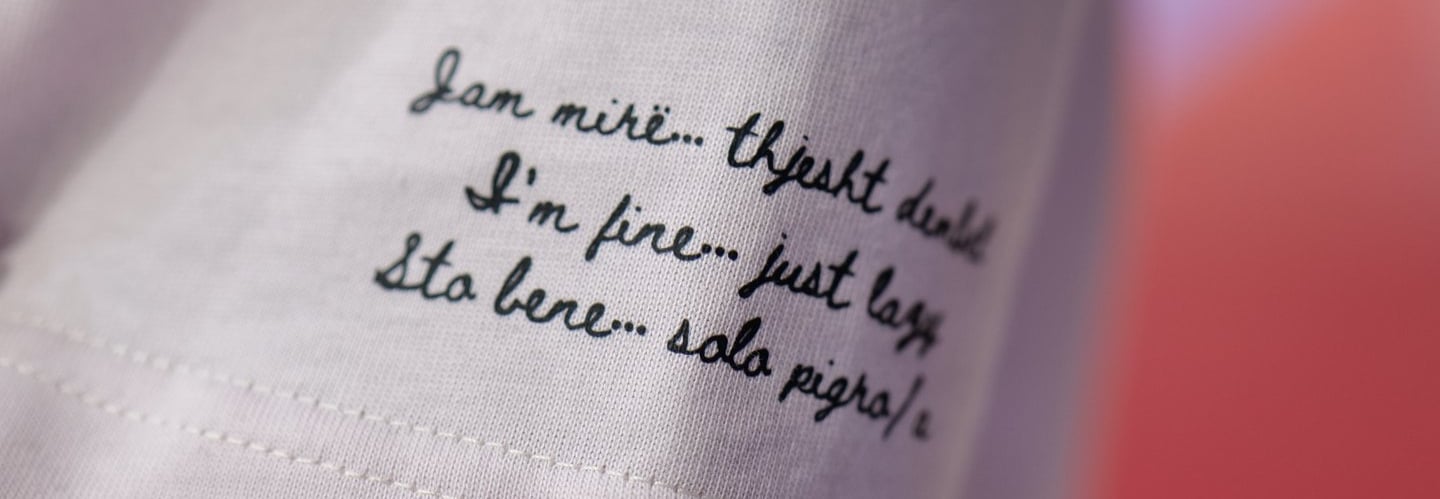 Jam mirë... thjesht
I'm fine... just lazy
Sto bene... solo